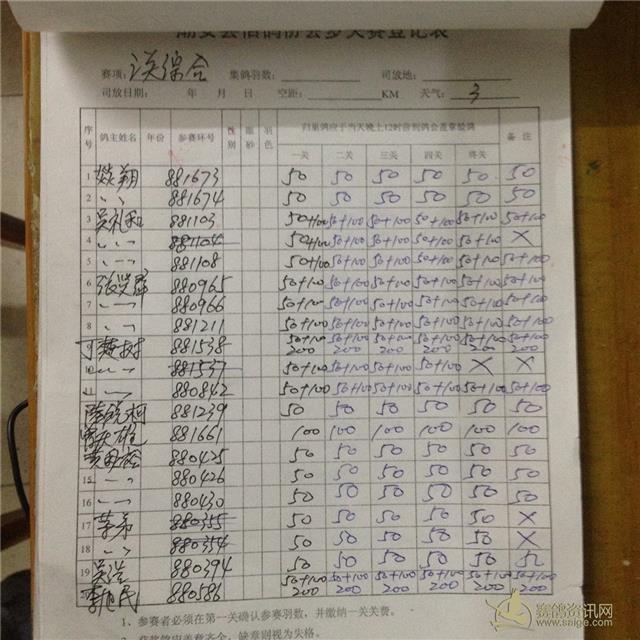 潮安县信鸽协会多关赛登记表
赛项: 关综合 集鸽羽数: 司放地:
司放日期: 年 月 日 空距: KM 天气: 3
序号 鸽主姓名 年份 参赛环号 性别 眼砂 羽色 归巢鸽应于当天晚上12时前到鸽会盖章验鸽 备注
一关 二关 三关 四关 终关
1 翔 881673 50 50 50 50 50 50
2 〃 881674 50 50 50 50 50 50
3 吴礼和 881103 50+100 50+100 50+100 50+100 50+100 50+100
4 〃 881104 50+100 50+100 50+100 50+100 50+100 ×
5 〃 881108 50+100 50+100 50+100 50+100 50+100 50+100
6 张兴群 880965 50+100 50+100 50+100 50+100 50+100 50+100
7 〃 880966 50+100 50+100 50+100 50+100 50+100 50+100
8 〃 881211 50+100 50+100 50+100 50+100 50+100 50+100
9 树 881538 50+100 200 50+100 200 50+100 200 50+100 200 50+100 200 50+100 200
10 〃 881537 50+100 50+100 50+100 50+100 × ×
11 〃 880842 50+100 50+100 50+100 50+100 50+100 50+100
陈锐柯 881239 50 50 50 50 50 50
881661 100 100 100 100 100 100
880425 50 50 50 50 50 50
15 〃 880426 50 50 50 50 50 50
16 〃 880430 50 50 50 50 50 50
17 弟 880355 50 50 50 50 50 ×
18 〃 880354 50 50 50 50 50 ×
19 吴浩 880394 50 50 50 50 50 50
民 880586 50+100 200 50+100 200 50+100 200 50+100 200 50+100 200 50+100 200
1、参赛者必须在第一关确认参赛羽数，并缴纳一关关费。
赛鸽资讯网
www.saige.com